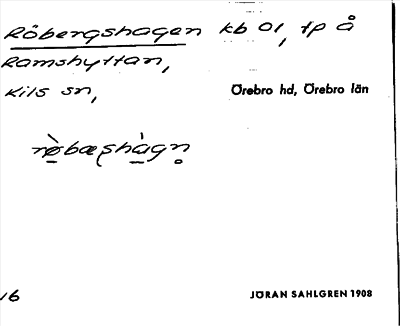 Röbergshagen kb 01, tp å
Ramshyttan,
Kils sn, Örebro hd, Örebro län
rø̀bæʂhàgn̥
16 JÖRAN SAHLGREN 1908